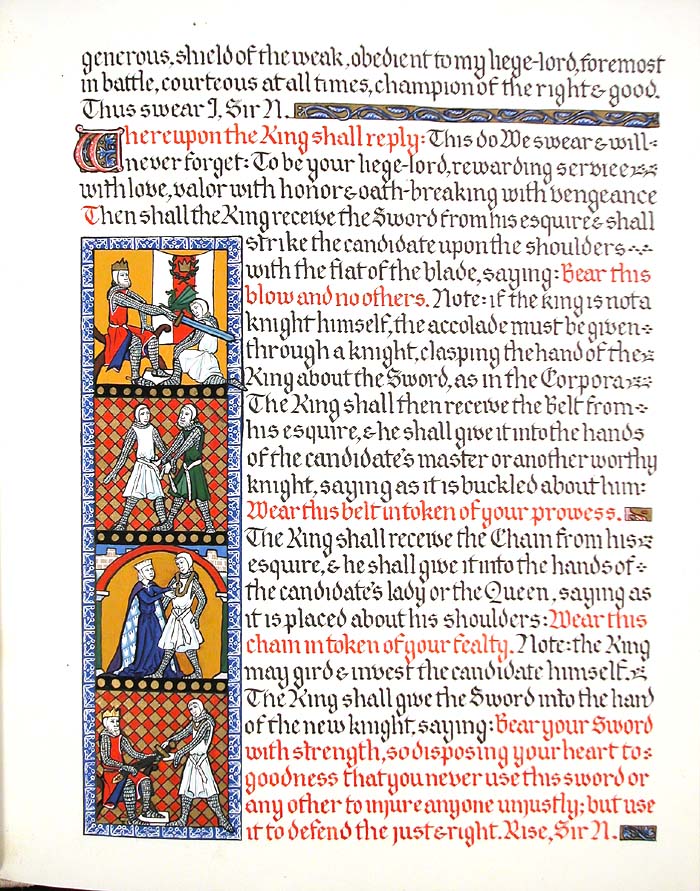 generous, shield of the weak, obedient to my liege-lord, foremost
in battle, courteous at all times, champion of the right & good.
Thus swear I, Sir N.
Whereupon the King shall reply: This do We swear & will
never forget: To be your liege-lord, rewarding service
with love, valor with honor & oath-breaking with vengeance
Then shall the King receive the Sword from his esquire & shall
strike the candidate upon the shoulders
with the flat of the blade, saying: Bear this
blow and no others. Note: if the king is not a
knight himself, the accolade must be given
through a knight, clasping the hand of the
King about the Sword, as in the Corpora
The King shall then receive the Belt from
his esquire, & he shall give it into the hands
of the candidate's master or another worthy
knight, saying as it is buckled about him:
Wear this belt in token of your prowess.
The King shall receive the Chain from his
esquire, & he shall give it into the hands of
the candidate's lady or the Queen, saying as
it is placed about his shoulders: Wear this
chain in token of your fealty. Note: the King
may gird & invest the candidate himself.
The King shall give the Sword into the hand
of the new knight, saying: Bear your Sword
with strength, so disposing your heart to
goodness that you never use this sword or
any other to injure anyone unjustly; but use
it to defend the just & right. Rise, Sir N.